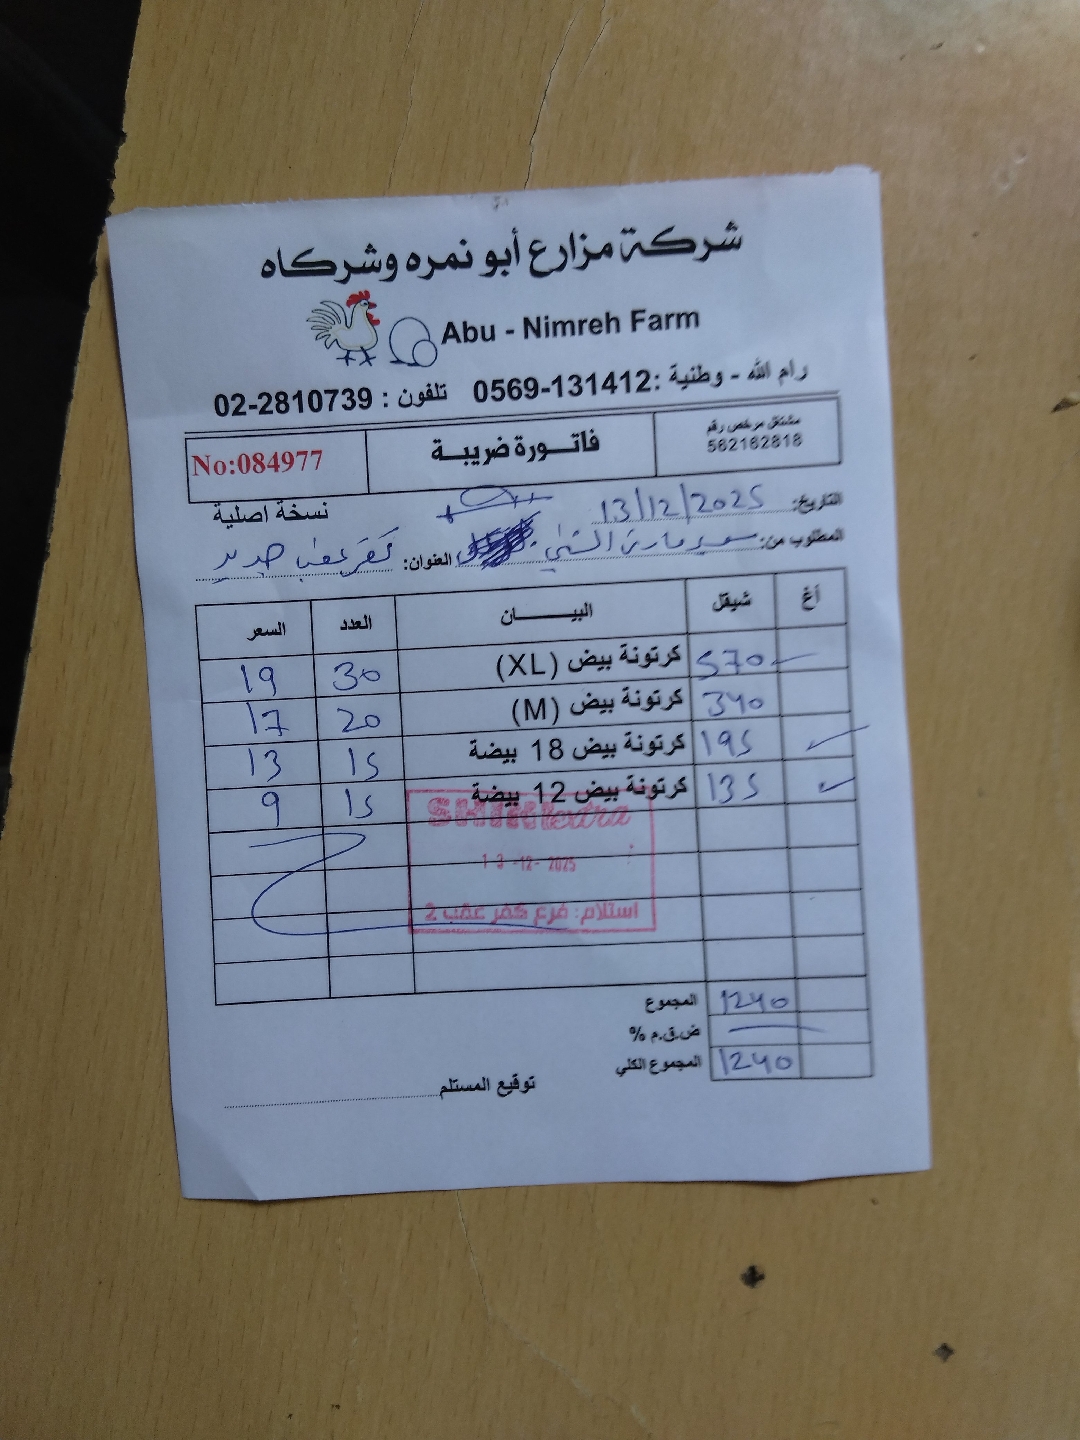 شركة مزارع أبو نمره وشركاه
Abu - Nimreh Farm
رام الله - وطنية :0569-131412 تلفون : 02-2810739
مشتغل مرخص رقم
562162818
فاتورة ضريبة
No:084977
نسخة اصلية
التاريخ: 13/12/2025
المطلوب من: سوبر ماركت الشني العنوان: كفر عقب جديد
أغ شيقل البيـــــان العدد السعر
570 كرتونة بيض (XL) 30 19
340 كرتونة بيض (M) 20 17
195 كرتونة بيض 18 بيضة 15 13
135 كرتونة بيض 12 بيضة 15 9
SHINI extra
13-12-2025
استلام: فرع كفر عقب 2
المجموع 1240
ض.ق.م %
المجموع الكلي 1240
توقيع المستلم